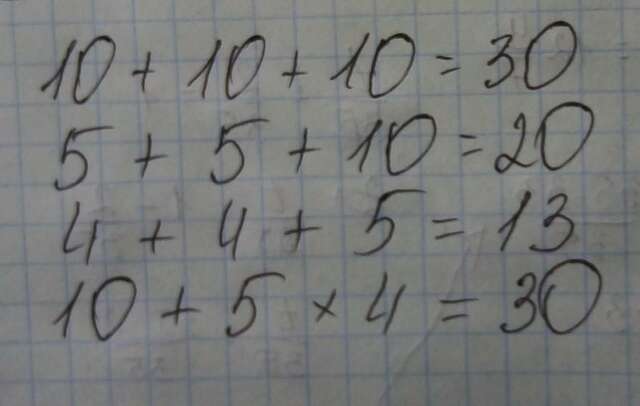 10 + 10 + 10 = 30
5 + 5 + 10 = 20
4 + 4 + 5 = 13
10 + 5 × 4 = 30